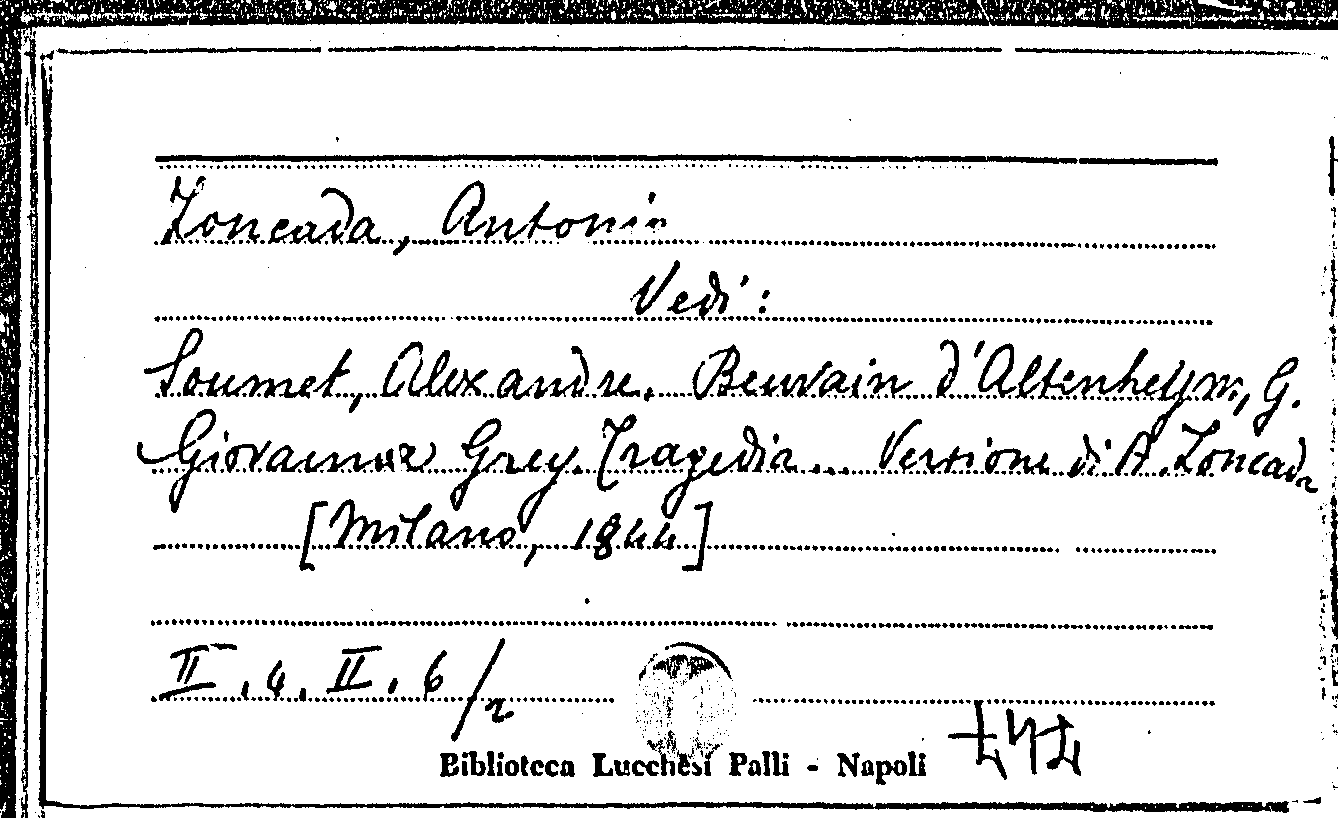 Zoncada, Antonio
Vedi:
Soumet, Alexandre. Beuvain d'Altenheym, G.
Giovanna Grey. Tragedia... Versione di A. Zoncada
[Milano, 1844]
II. 4. II. 6/2
Biblioteca Lucchesi Palli - Napoli